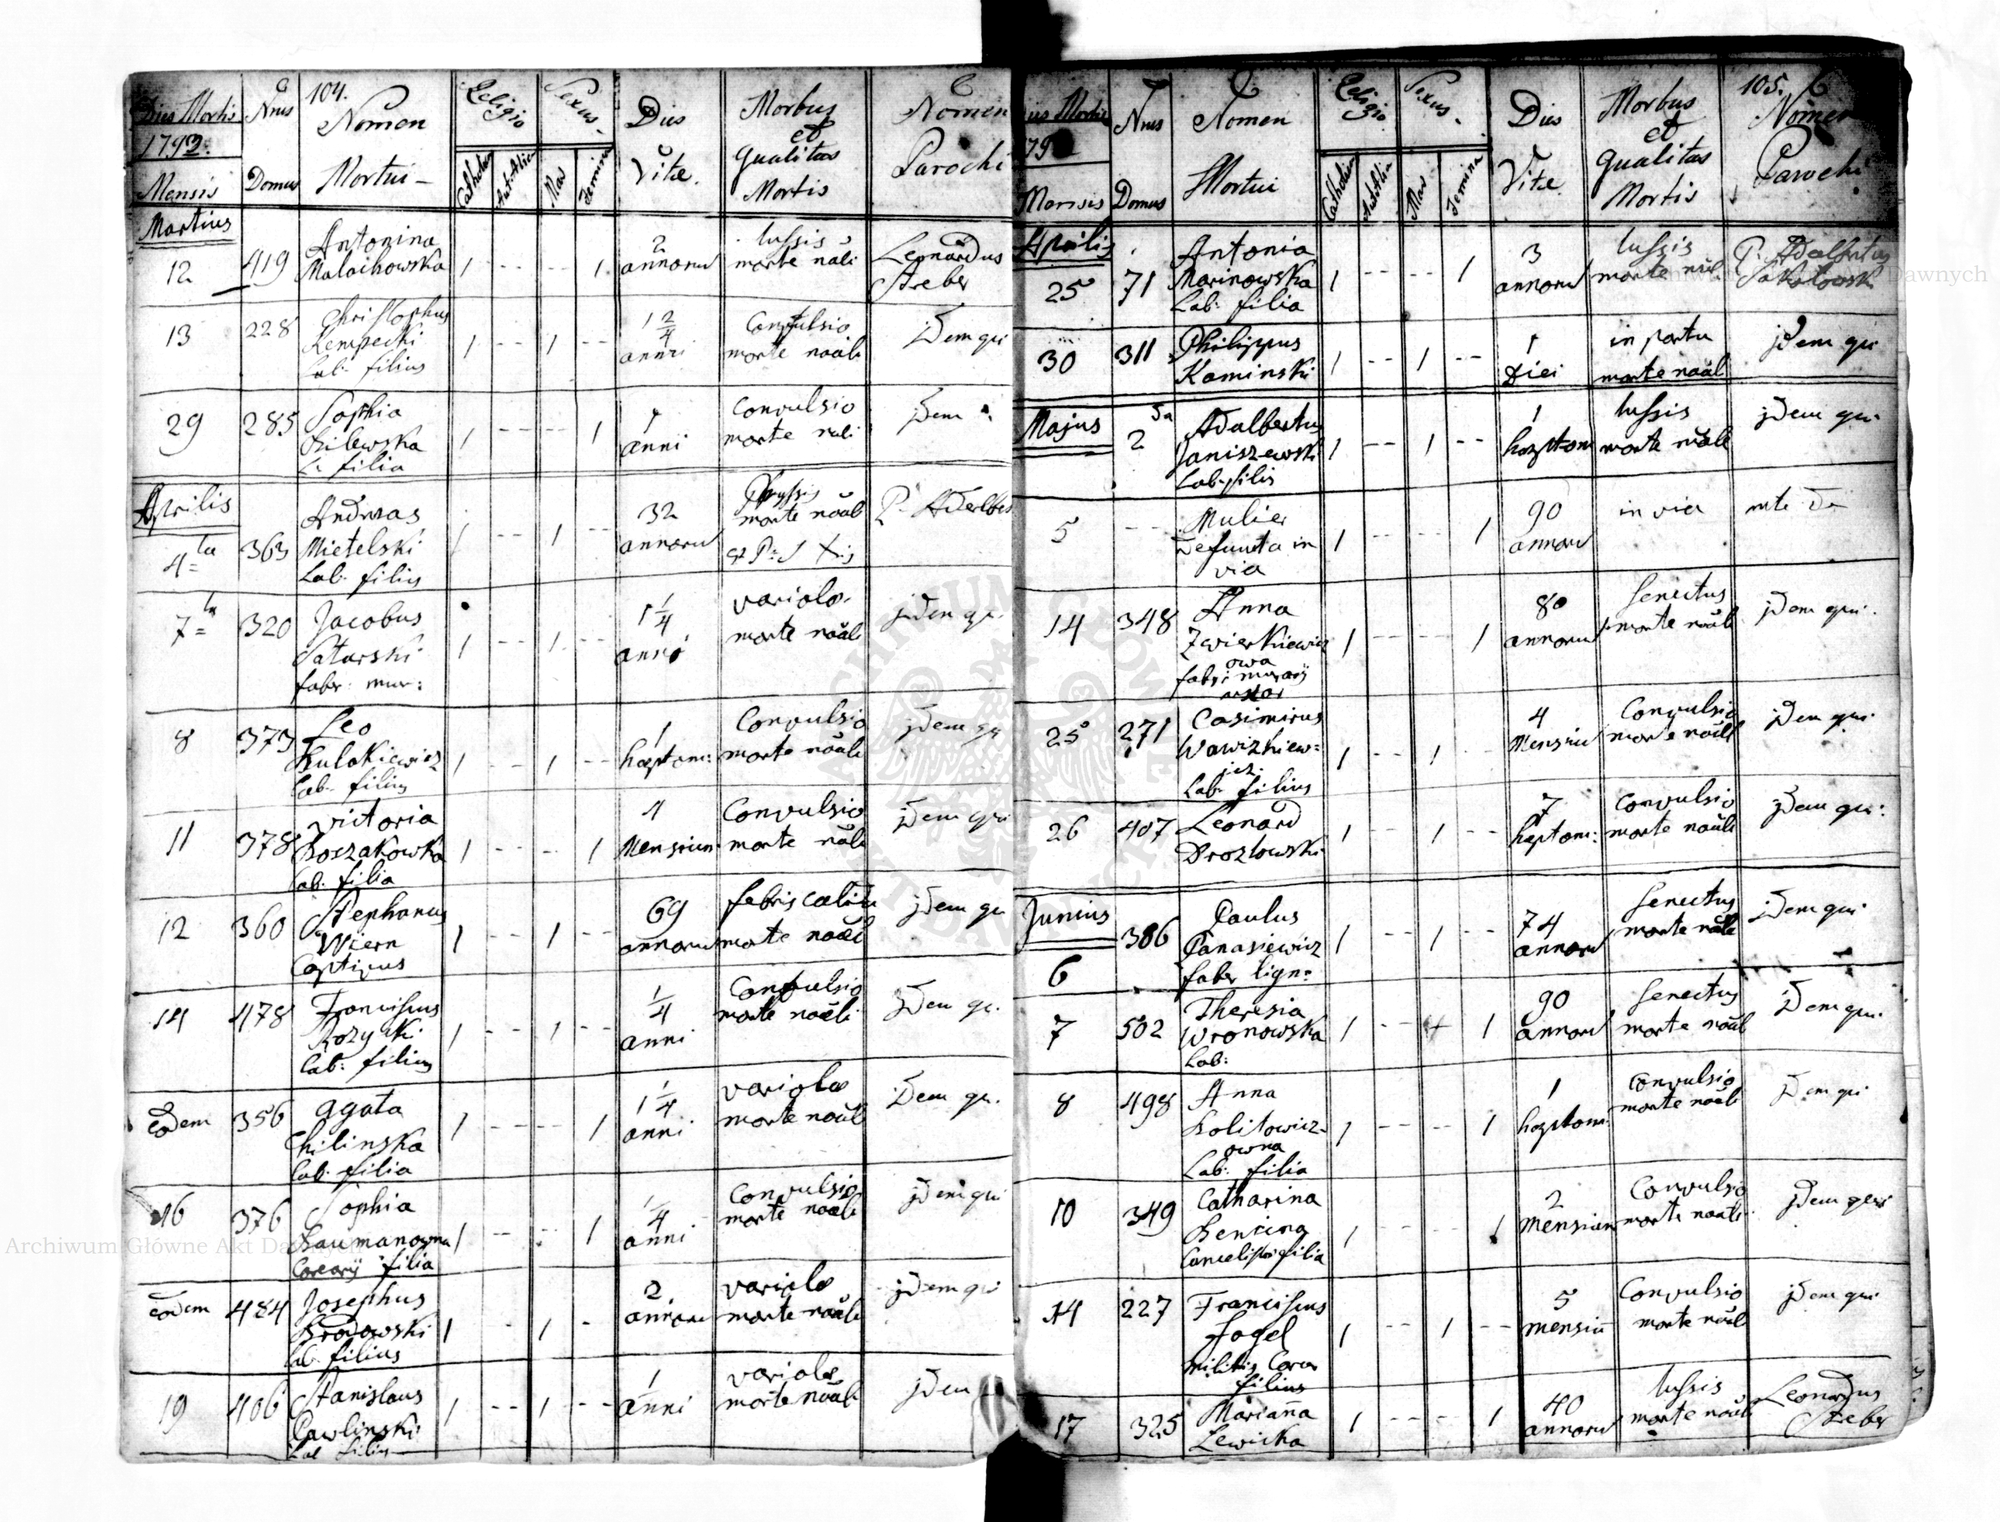 104.
Dies Mortis
1793.
Mensis
Nrus
Domus
Nomen
Mortui
Religio
Catholica
Aut Alia
Sexus
Mas
Femina
Dies
Vitæ
Morbus
et
Qualitas
Mortis
Nomen
Parochi
Martius
12 419 Antonina
Malachowska
1 - - - - 1
2
annoru
tussis
morte nāli
Leonardus
Streber
13 228 Christophus
Kempecki
Lab. filius
1 - - 1 - -
1 2/4
anni
Convulsio
morte nāāli
jdem qui
29 285 Sophia
Kilewska
L. filia
1 - - - - 1
1
anni
Convulsio
morte nāli
jdem
Aprilis
4ta 363 Andreas
Mietelski
Lab. filius
1 - - 1 - -
32
annoru
Phtysis
morte nāāli
P.
7ta 320 Jacobus
Satarski
faber mur:
1 - - 1 - -
1 1/4
anni
variolæ
morte nāāli
jdem qu.
8 373 Leo
Kulakiewicz
Lab. filius
1 - - 1 - -
1
hæptom:
Convulsio
morte nāāli
jdem qu
11 378 Victoria
Koszakowka
Lab. filia
1 - - - - 1
4
Mensium
Convulsio
morte nāli
jdem qui
12 360 Stephanus
Wiern
Captivus
1 - - 1 - -
69
annoru
febris
morte nāāli
jdem qu
14 478 Franciscus
Rozycki
Lab. filius
1 - - 1 - -
1/4
anni
Convulsio
morte nāāli
jdem qu.
Eodem 356 Agata
Chilinska
Lab. filia
1 - - - - 1
1 1/4
anni
variolæ
morte nāāli
jdem qu.
16 376 Sophia
Baumanowna
filia
1 - - - 1
1/4
anni
Convulsio
morte nāāli
jdem qui
eodem 484 Josephus
Brodowski
Lab. filius
1 - - 1 -
2
annoru
variolæ
morte nāāli
jdem qui
19 406 Stanislaus
Pawlinski
Lab filius
1 - - 1 - -
1
anni
variolæ
morte nāāli
jdem
105.
Dies Mortis
179
Mensis
Nrus
Domus
Nomen
Mortui
Religio
Catholica
Aut Alia
Sexus
Mas
Femina
Dies
Vitæ
Morbus
et
Qualitas
Mortis
Nomen
Parochi
Aprilis
25 71 Antonia
Marinowska
Lab: filia
1 - - - - 1
3
annoru
tussis
morte nāli
P. Adalbertus
Sakolowski
30 311 Philippus
Kaminski
1 - - 1 - -
1
Diei
in partu
morte nāāl
jdem qui
Majus
2da Adalbertus
Janiszewski
Lab. filis
1 - - 1 - -
1
hæptom
tussis
morte nāāli
jdem qui
5 - - Mulier
defuncta in
via
1 - - - - 1
90
annoru
in via
14 348 Anna
Zwierkiewicz
owa
fabri murarij
uxor
1 - - - - 1
80
annoru
Senectus
morte nāāli
jdem qui.
25 271 Casimirus
Wawizkiew=
icz
Lab. filius
1 - - 1 - -
4
Mensiu
Convulsio
morte nāāli
jdem qui
26 407 Leonard
Drozlowski
1 - - 1 - -
7
hæptom:
Convulsio
morte nāāli
jdem qui:
Junius
6 386 Paulus
Panasiewicz
faber lign:
1 - - 1 - -
74
annoru
Senectus
morte nāli
jdem qui
7 502 Theresia
Wronowska
Lab:
1 - - 1
90
annoru
Senectus
morte nāāl
jdem qui.
8 498 Anna
Kolitowicz=
owna
Lab: filia
1 - - - - 1
1
hæptom:
Convulsio
morte nāāli
jdem qui
10 349 Catharina
Bencina
Cancelistæ filia
1 - - - - 1
2
mensium
Convulsio
morte nāāli
jdem qui
14 227 Franciscus
Fogel
militis
filius
1 - - 1 - -
5
mensiū
Convulsio
morte nāāl
jdem qui
17 325 Marianna
Lewicka
1 - - - - 1
40
annoru
tussis
morte nāāli
Leonardus
Streber
Archiwum Główne Akt Dawnych